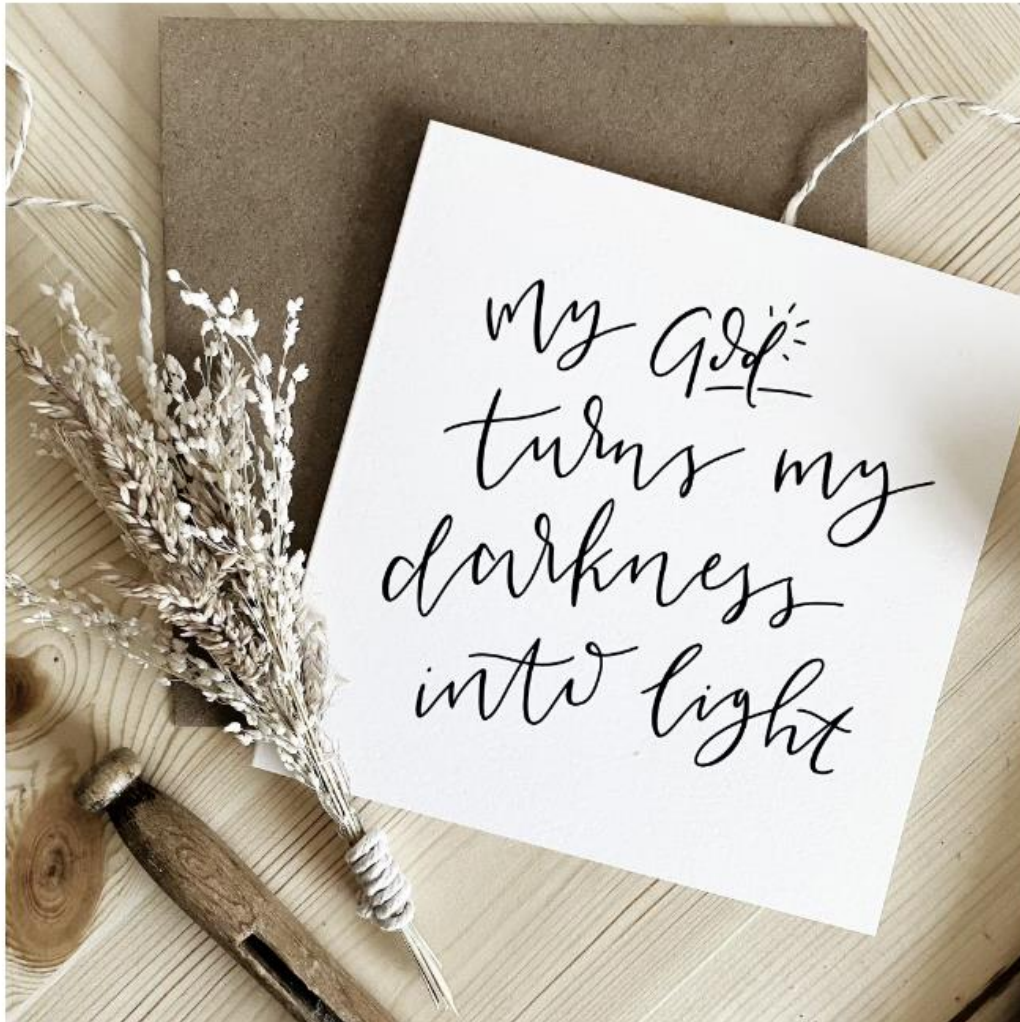 my God
turns my
darkness
into light